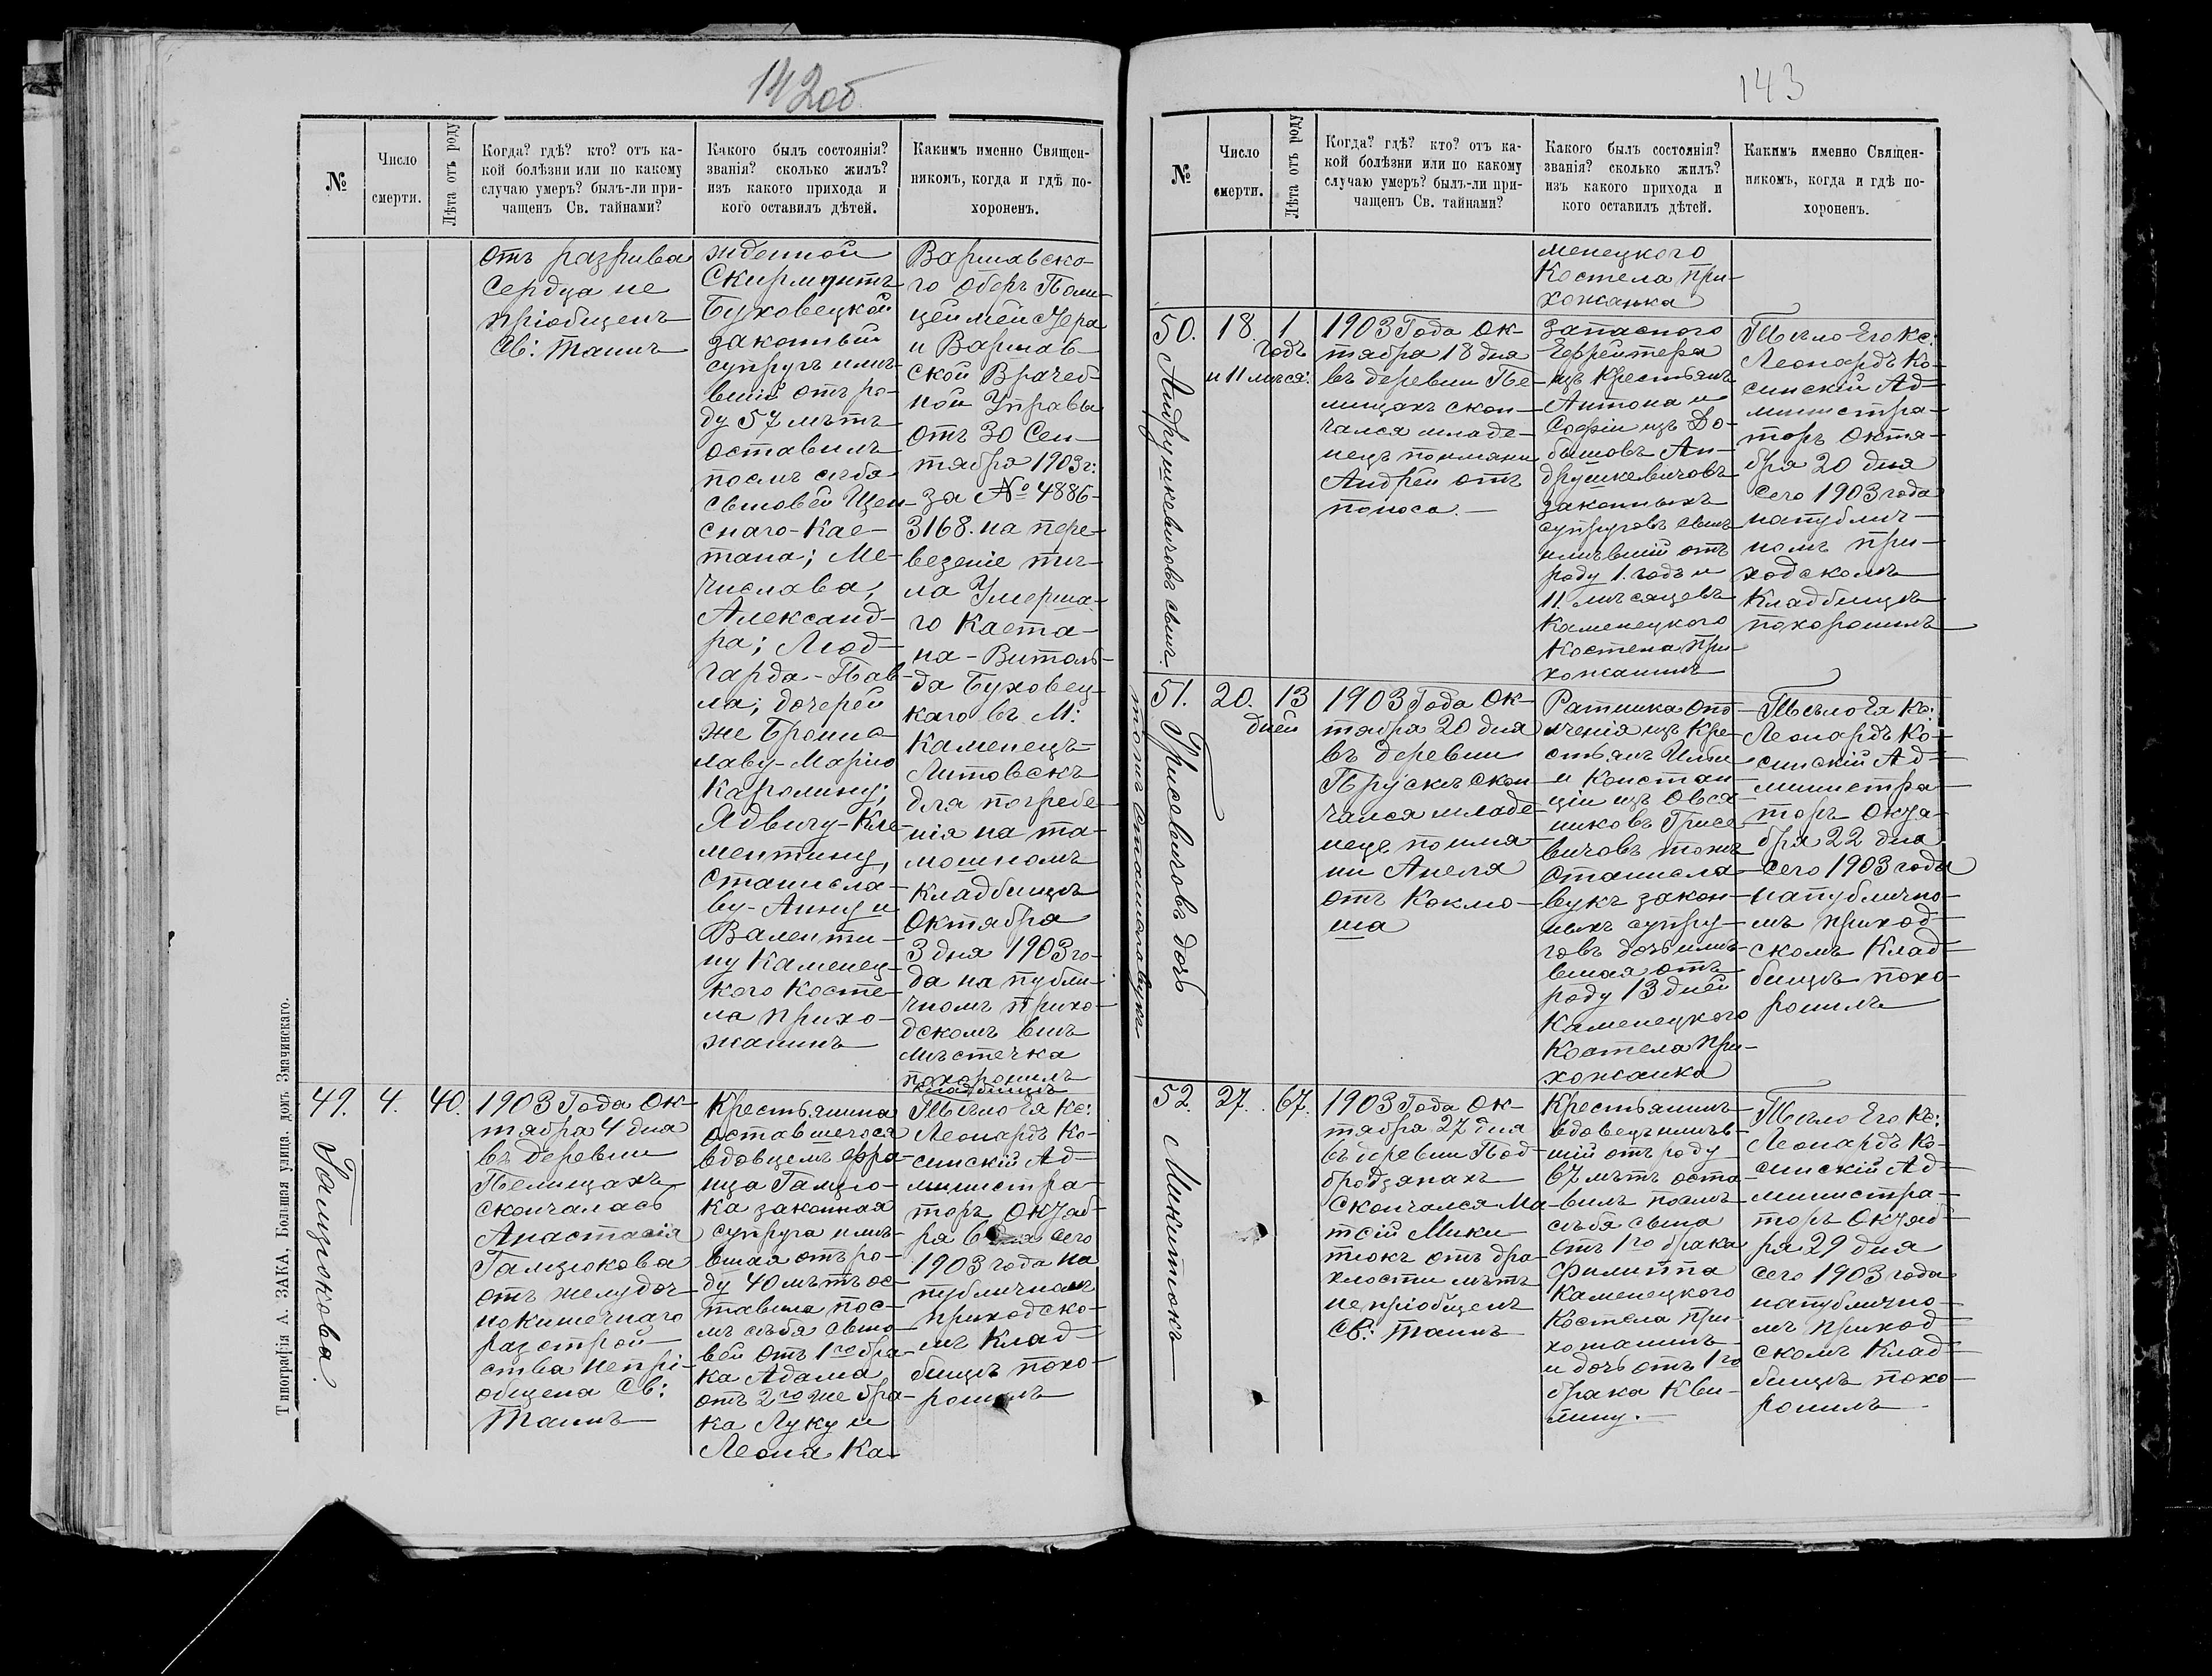 142об
№
Число
смерти.
Лѣта отъ роду
Когда? гдѣ? кто? отъ ка-
кой болѣзни или по какому
случаю умеръ? былъ-ли при-
чащенъ Св. тайнами?
Какого былъ состоянія?
званія? сколько жилъ?
изъ какого прихода и
кого оставилъ дѣтей.
Какимъ именно Священ-
никомъ, когда и гдѣ по-
хороненъ.
отъ разрива
сердца не
пріобщенъ
Св: Таинъ
жденной
Скирмунтъ
Буховецкой
законный
супругъ имѣ-
вшій отъ ро-
ду 57 лѣтъ
оставилъ
послѣ себя
сыновей Щен-
снаго-Кае-
тана; Ме-
числава,
Александ-
ра; Люд-
гарда-Пав-
ла; дочерей
же Брони-
лаву-Марію
Каролину;
Ядвигу-Кле-
ментину,
Станисла-
ву-Анну и
Валенти-
ну Каменец-
кого Косте-
ла прихо-
жанинъ
Варшавско-
го Оберъ Поли-
цеймейстера
и Варшав-
ской Врачеб-
ной Управы
отъ 30 Сен-
тября 1903 г:
за № 4886-
3168. на пере-
везеніе тѣ-
ла Умерша-
го Каета-
на-Витоль-
да Буховец-
каго въ М:
Каменецъ-
Литовскъ
для погребе-
нія на та-
мошномъ
Кладбищѣ
Октября
3 дня 1903 го-
да на публи-
чномъ прихо-
дскомъ внѣ
мѣстечка
похоронилъ
кладбищѣ
49.
4.
40.
Гамзюкова.
1903 Года Ок-
тября 4 дня
въ деревни
Пелищахъ
скончалась
Анастасія
Гамзюкова
отъ желудоч-
нокишечнаго
разстрой-
ства непрі-
общена Св:
Таинъ
Крестьянина
оставшегося
вдовцемъ Фра-
нца Гамзю-
ка законная
супруга имѣ-
вшая отъ ро-
ду 40 лѣтъ ос-
тавила пос-
лѣ себя сыно-
вей отъ 1го бра-
ка Адама
отъ 2го же бра-
ка Луку и
Леона Ка-
Тѣло Ея Кс:
Леонардъ Ко-
синскій Ад-
министра-
торъ Октяб-
ря 6 дня сего
1903 года на
публичномъ
приходско-
мъ Клад-
бищѣ похо-
ронилъ
Типографія А. ЗАКА, Большая улица, домъ Змачинскаго.
143
№
Число
смерти.
Лѣта отъ роду
Когда? гдѣ? кто? отъ ка-
кой болѣзни или по какому
случаю умеръ? былъ-ли при-
чащенъ Св. тайнами?
Какого былъ состоянія?
званія? сколько жилъ?
изъ какого прихода и
кого оставилъ дѣтей.
Какимъ именно Священ-
никомъ, когда и гдѣ по-
хороненъ.
менецкого
Костела при-
хожанка
50.
18.
1
годъ
и 11 мѣсяц:
Андрушкевичовъ сынъ.
1903 Года Ок-
тября 18 дня
въ деревни Пе-
лищахъ скон-
чался младе-
нецъ поимяни
Андрей отъ
поноса.
Запасного
Ефрейтера
изъ Крестьянъ
Антона и
Софіи изъ До-
бышовъ Ан-
друшкевичовъ
законныхъ
супруговъ сынъ
имѣвшій отъ
роду 1. годъ и
11. мѣсяцевъ
Каменецкого
Костела при-
хожанинъ
Тѣло Его Кс:
Леонардъ Ко-
синскій Ад-
министра-
торъ Октя-
бря 20 дня
сего 1903 года
напублич-
номъ при-
ходскомъ
Кладбищѣ
похоронилъ
51.
20.
13
дней
Грисевичовъ дочь
тожъ Станиславукъ
1903 Года Ок-
тября 20 дня
въ деревни
Прускъ скон-
чался младе-
нецъ поимя-
ни Анеля
отъ Коклю-
ша
Ратника опо-
лченія изъ Кре-
стьянъ Ильи
и Констан-
ціи изъ Овся-
никовъ Грисе-
вичовъ тожъ
Станисла-
вукъ закон-
ныхъ супру-
говъ дочь имѣ-
вшая отъ
роду 13 дней
Каменецкого
Костела при-
хожанка
Тѣло Ея Кс:
Леонардъ Ко-
синскій Ад-
министра-
торъ Октя-
бря 22 дня
сего 1903 года
напублично-
мъ приход-
скомъ Клад-
бищѣ похо-
ронилъ
52.
27.
67.
Микитюкъ
1903 Года Ок-
тября 27 дня
въ деревни Под-
бродзянахъ
скончался Ма-
тсій Мики-
тюкъ отъ дря-
хлости лѣтъ
непріобщенъ
Св: Таинъ
Крестьянинъ
вдовецъ имѣв-
шій отъ роду
67 лѣтъ оста-
вилъ послѣ
себя сына
отъ 1го брака
Филиппа
Каменецкого
Костела при-
хожанинъ
и дочь отъ 1го
брака Кви-
лину.
Тѣло Его Кс:
Леонардъ Ко-
синскій Ад-
министра-
торъ Октяб-
ря 29 дня
сего 1903 года
напублично-
мъ приход-
скомъ Клад-
бищѣ похо-
ронилъ